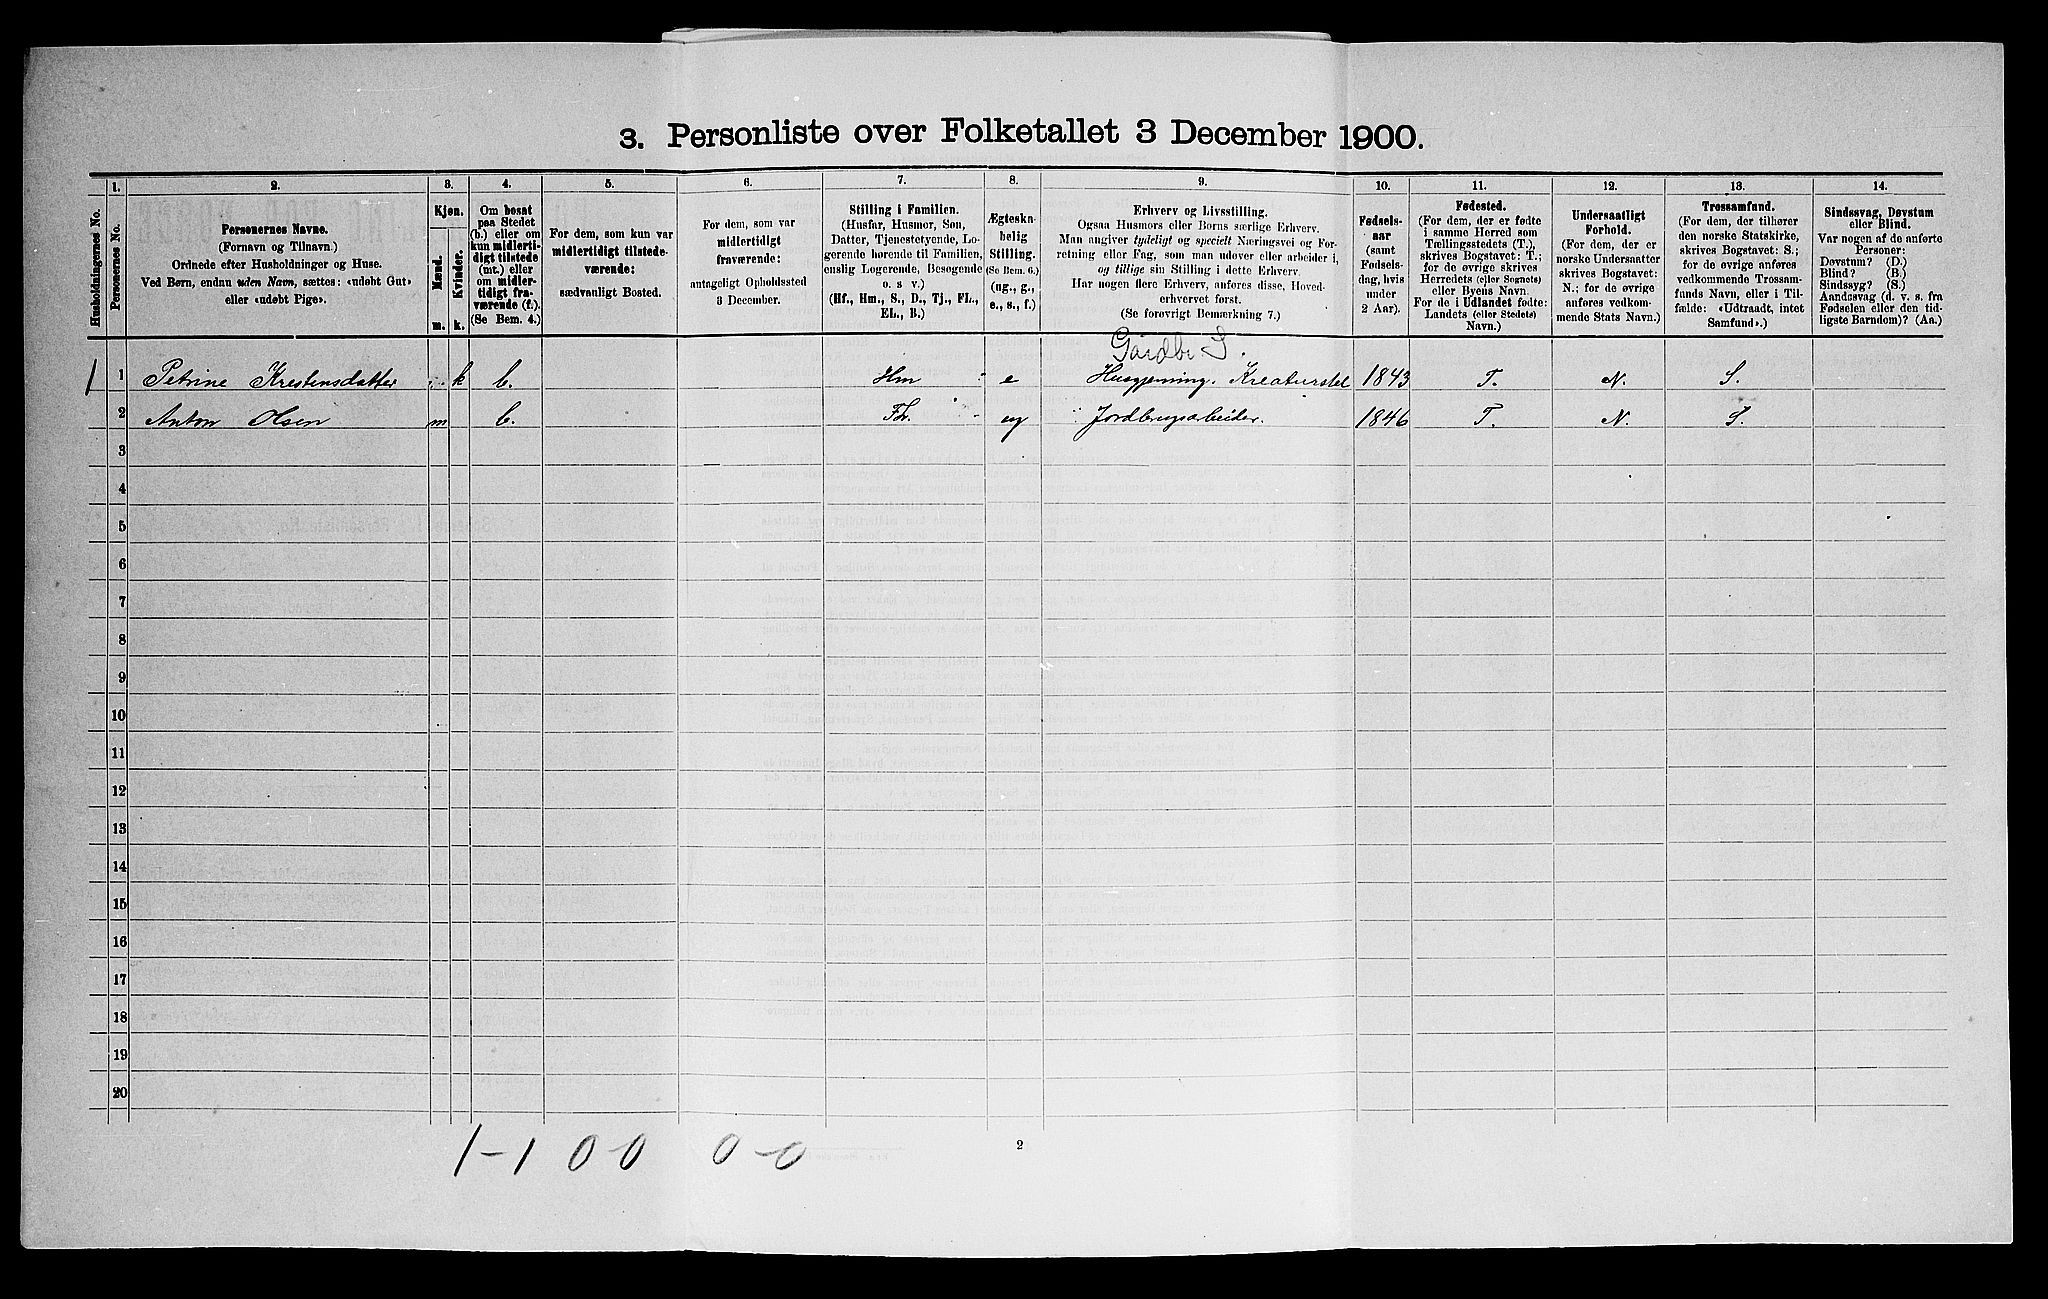 3. Personliste over Folketallet 3 December 1900.
1. 2. 3. 4. 5. 6. 7. 8. 9. 10. 11. 12. 13. 14.
Husholdningernes No.
Personernes No.
Personernes Navne.
(Fornavn og Tilnavn.)
Ordnede efter Husholdninger og Huse.
Ved Børn, endnu uden Navn, sættes: «udøbt Gut»
eller «udøbt Pige».
Kjøn.
Mænd.
Kvinder.
m. k.
Om bosat
paa Stedet
(b.) eller om
kun midlerti-
digt tilstede
(mt.) eller
om midler-
tidigt fra-
værende (f.).
(Se Bem. 4.)
For dem, som kun var
midlertidigt tilstede-
værende:
sædvanligt Bosted.
For dem, som var
midlertidigt
fraværende:
antageligt Opholdssted
3 December.
Stilling i Familien.
(Husfar, Husmor, Søn,
Datter, Tjenestetyende, Lo-
gerende hørende til Familien,
enslig Logerende, Besøgende
o. s v.)
(Hf., Hm., S., D., Tj., FL.,
EL., B.)
Ægteska-
belig
Stilling.
(Se Bem. 6.)
(ug., g.,
e., s., f.)
Erhverv og Livsstilling.
Ogsaa Husmors eller Børns særlige Erhverv.
Man angiver tydeligt og specielt Næringsvei og For-
retning eller Fag, som man udøver eller arbeider i,
og tillige sin Stilling i dette Erhverv.
Har nogen flere Erhverv, anføres disse, Hoved-
erhvervet først.
(Se forøvrigt Bemærkning 7.)
Fødsels-
aar
(samt
Fødsels-
dag, hvis
under
2 Aar).
Fødested.
(For dem, der er fødte
i samme Herred som
Tællingsstedets (T.),
skrives Bogstavet: T.;
for de øvrige skrives
Herredets (eller Sognets)
eller Byens Navn.
For de i Udlandet fødte:
Landets (eller Stedets)
Navn.)
Undersaatligt
Forhold.
(For dem, der er
norske Undersaatter
skrives Bogstavet:
N.; for de øvrige
anføres vedkom-
mende Stats Navn.)
Trossamfund.
(For dem, der tilhører
den norske Statskirke,
skrives Bogstavet: S.;
for de øvrige anføres
vedkommende Trossam-
funds Navn, eller i Til-
fælde: «Udtraadt, intet
Samfund».)
Sindssvag, Døvstum
eller Blind.
Var nogen af de anførte
Personer:
Døvstum? (D.)
Blind? (B.)
Sindssyg? (S.)
Aandssvag (d. v. s. fra
Fødselen eller den tid-
ligste Barndom)? (Aa.)
Gårdbr S.
1 1 Petrine Krestensdatter k b. Hm e Husgjerning. Kreaturstel 1843 T. N. S.
2 Anton Olsen m b. ug Jordbrugsarbeider. 1846 T. N. S.
3
4
5
6
7
8
9
10
11
12
13
14
15
16
17
18
19
20
1-1 0-0 0-0
2